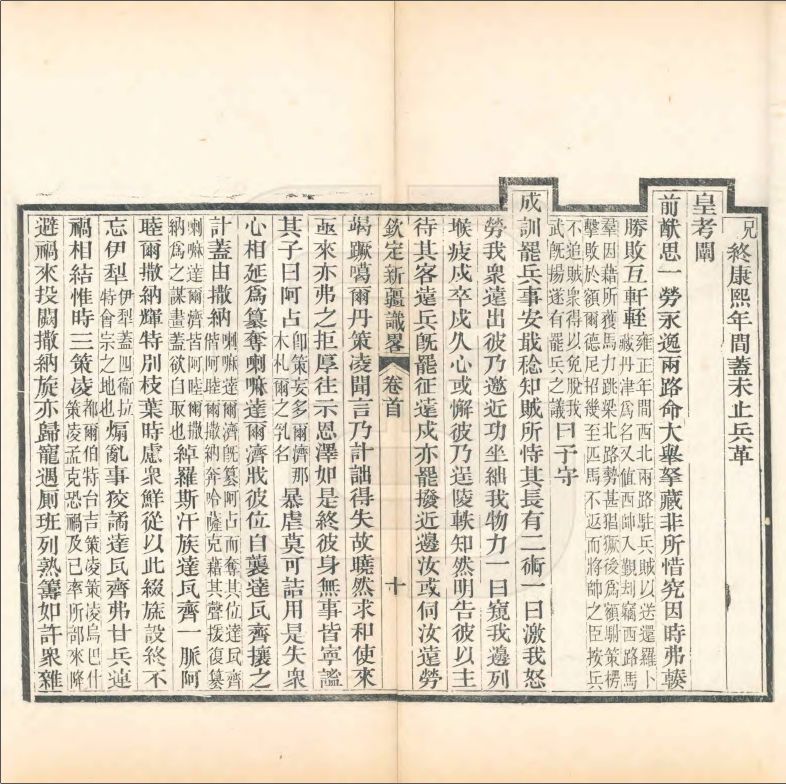 兄終康熙年間蓋未止兵革
皇考闡
前猷思一勞永逸兩路命大舉孥藏非所惜究因時弗輳
勝敗互軒輊雍正年間西北兩路駐兵賊以送還羅卜
藏丹津爲名又值西師入覲刦竊西路馬
羣因藉所獲馬力跳梁北路勢甚猖獗後爲額駙策楞
擊敗於額爾德尼招幾至匹馬不返而將帥之臣按兵
不追賊衆得以免脫我
武旣揚遂有罷兵之議曰予守
成訓罷兵事安戢稔知賊所恃其長有二術一曰激我怒
勞我衆遠出彼乃邀近功坐絀我物力一曰窺我邊列
堠疲戍卒戍久心或懈彼乃逞陵軼知然明告彼以主
待其客遠兵旣罷征遠戍亦罷撥近邊汝或伺汝遠勞
欽定新疆識畧 卷首 十
竭蹶噶爾丹策凌聞言乃計詘得失故曉然求和使來
亟來亦弗之拒厚往示恩澤如是終彼身無事皆寧謐
其子曰阿占卽策妄多爾濟那
木札爾之乳名暴虐莫可詰用是失衆
心相延爲篡奪喇嘛達爾濟戕彼位自襲達瓦齊攘之
計蓋由撒納喇嘛達爾濟旣篡阿占而奪其位達瓦齊
偕阿睦爾撒納奔哈薩克藉其聲援復篡
喇嘛達爾濟皆阿睦爾撒
納爲之謀畫蓋欲自取也綽羅斯汗族達瓦齊一脈阿
睦爾撒納輝特別枝葉時慮衆鮮從以此綴旒設終不
忘伊犁伊犁蓋四衞拉
特會宗之地也煽亂事狡譎達瓦齊弗甘兵連
禍相結惟時三策凌都爾伯特台吉策凌策凌烏巴什
策凌孟克恐禍及已率所部來降
避禍來投闕撒納旋亦歸寵遇厠班列熟籌如許衆雜